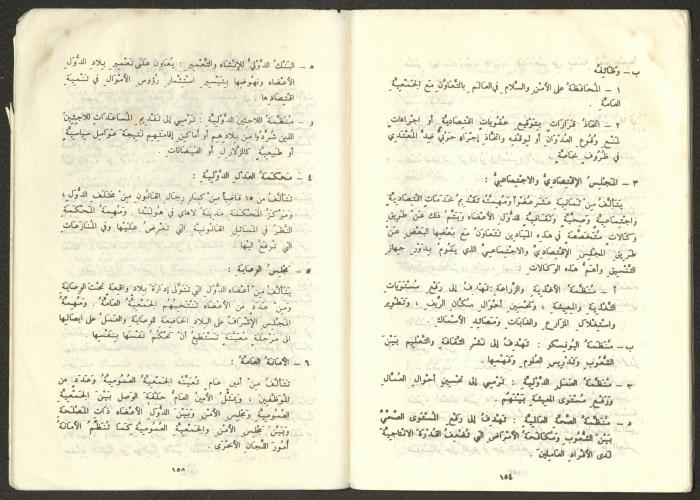 ب – وظائفه
١ – المحافظة على الأمن والسلام في العالم بالتعاون مع الجمعية
العامة .
٢ – اتخاذ قرارات بتوقيع عقوبات اقتصادية أو اجراءات
لمنع وقوع العدوان أو لوقفه واتخاذ إجراء حربي ضد المعتدي
في ظروف خاصة .
٣ – المجلس الاقتصادي والاجتماعي :
يتألف من ثمانية عشر عضواً ومهمته تقديم خدمات اقتصادية
واجتماعية وصحية وثقافية للدول الأعضاء ويتم ذلك عن طريق
وكالات متخصصة في هذه الميادين تتعاون مع بعضها البعض عن
طريق المجلس الاقتصادي والاجتماعي الذي يقوم بدور جهاز
التنسيق وأهم هذه الوكالات :
أ – منظمة الأغذية والزراعة تهدف إلى رفع مستويات
التغذية والمعيشة ، وتحسين أحوال سكان الريف ، وتطوير
واستغلال المزارع والغابات ومصائد الأسماك .
ب – منظمة اليونسكو : تهدف إلى نشر الثقافة والتعليم بين
الشعوب وتدريس العلوم وفهمها .
ج – منظمة العمل الدولية : ترمي إلى تحسين أحوال العمال
ورفع مستوى المعيشة بينهم .
د – منظمة الصحة العالمية : تهدف إلى رفع المستوى الصحي
بين الشعوب ومكافحة الأمراض التي تضعف القدرة الانتاجية
لدى الأفراد العاملين
١٥٤
ه – البنك الدولي للإنشاء والتعمير : يعاون على تعمير بلاد الدول
الأعضاء ونهوضها بتيسير استثمار رؤوس الأموال في تنمية
اقتصادها .
و – منظمة اللاجئين الدولية : ترمي إلى تقديم المساعدات للاجئين
الذين شردوا من بلادهم أو أماكن إقامتهم نتيجة عوامل سياسية
أو طبيعية كالزلازل أو الفيضانات
٤ – محكمة العدل الدولية :
تتألف من ١٥ قاضياً من كبار رجال القانون من مختلف الدول ،
ومركز المحكمة مدينة لاهاي في هولندا . ومهمة المحكمة
النظر في المسائل القانونية التي تعرض عليها وفي المنازعات
التي ترفع إليها .
٥ – مجلس الوصاية :
يتألف من أعضاء الدول التي تتولى إدارة بلاد واقعة تحت الوصاية
ومن عدد من الأعضاء تنتخبهم الجمعية العامة . ومهمة
المجلس الإشراف على البلاد الخاضعة الوصاية والعمل على ايصالها
إلى مرحلة معينة تستطيع أن تحكم نفسها بنفسها .
٦ – الأمانة العامة :
تتألف من أمين عام تعينه الجمعية العمومية وعدد من
الموظفين ، ويمثل الأمين العام حلقة الوصل بين الجمعية
العمومية ومجلس الأمن وبين الدول الأعضاء ذات المصلحة
وبين مجلس الأمن والجمعية العمومية كما تنظم الأمانة
أمور اللجان الأخرى
١٥٨